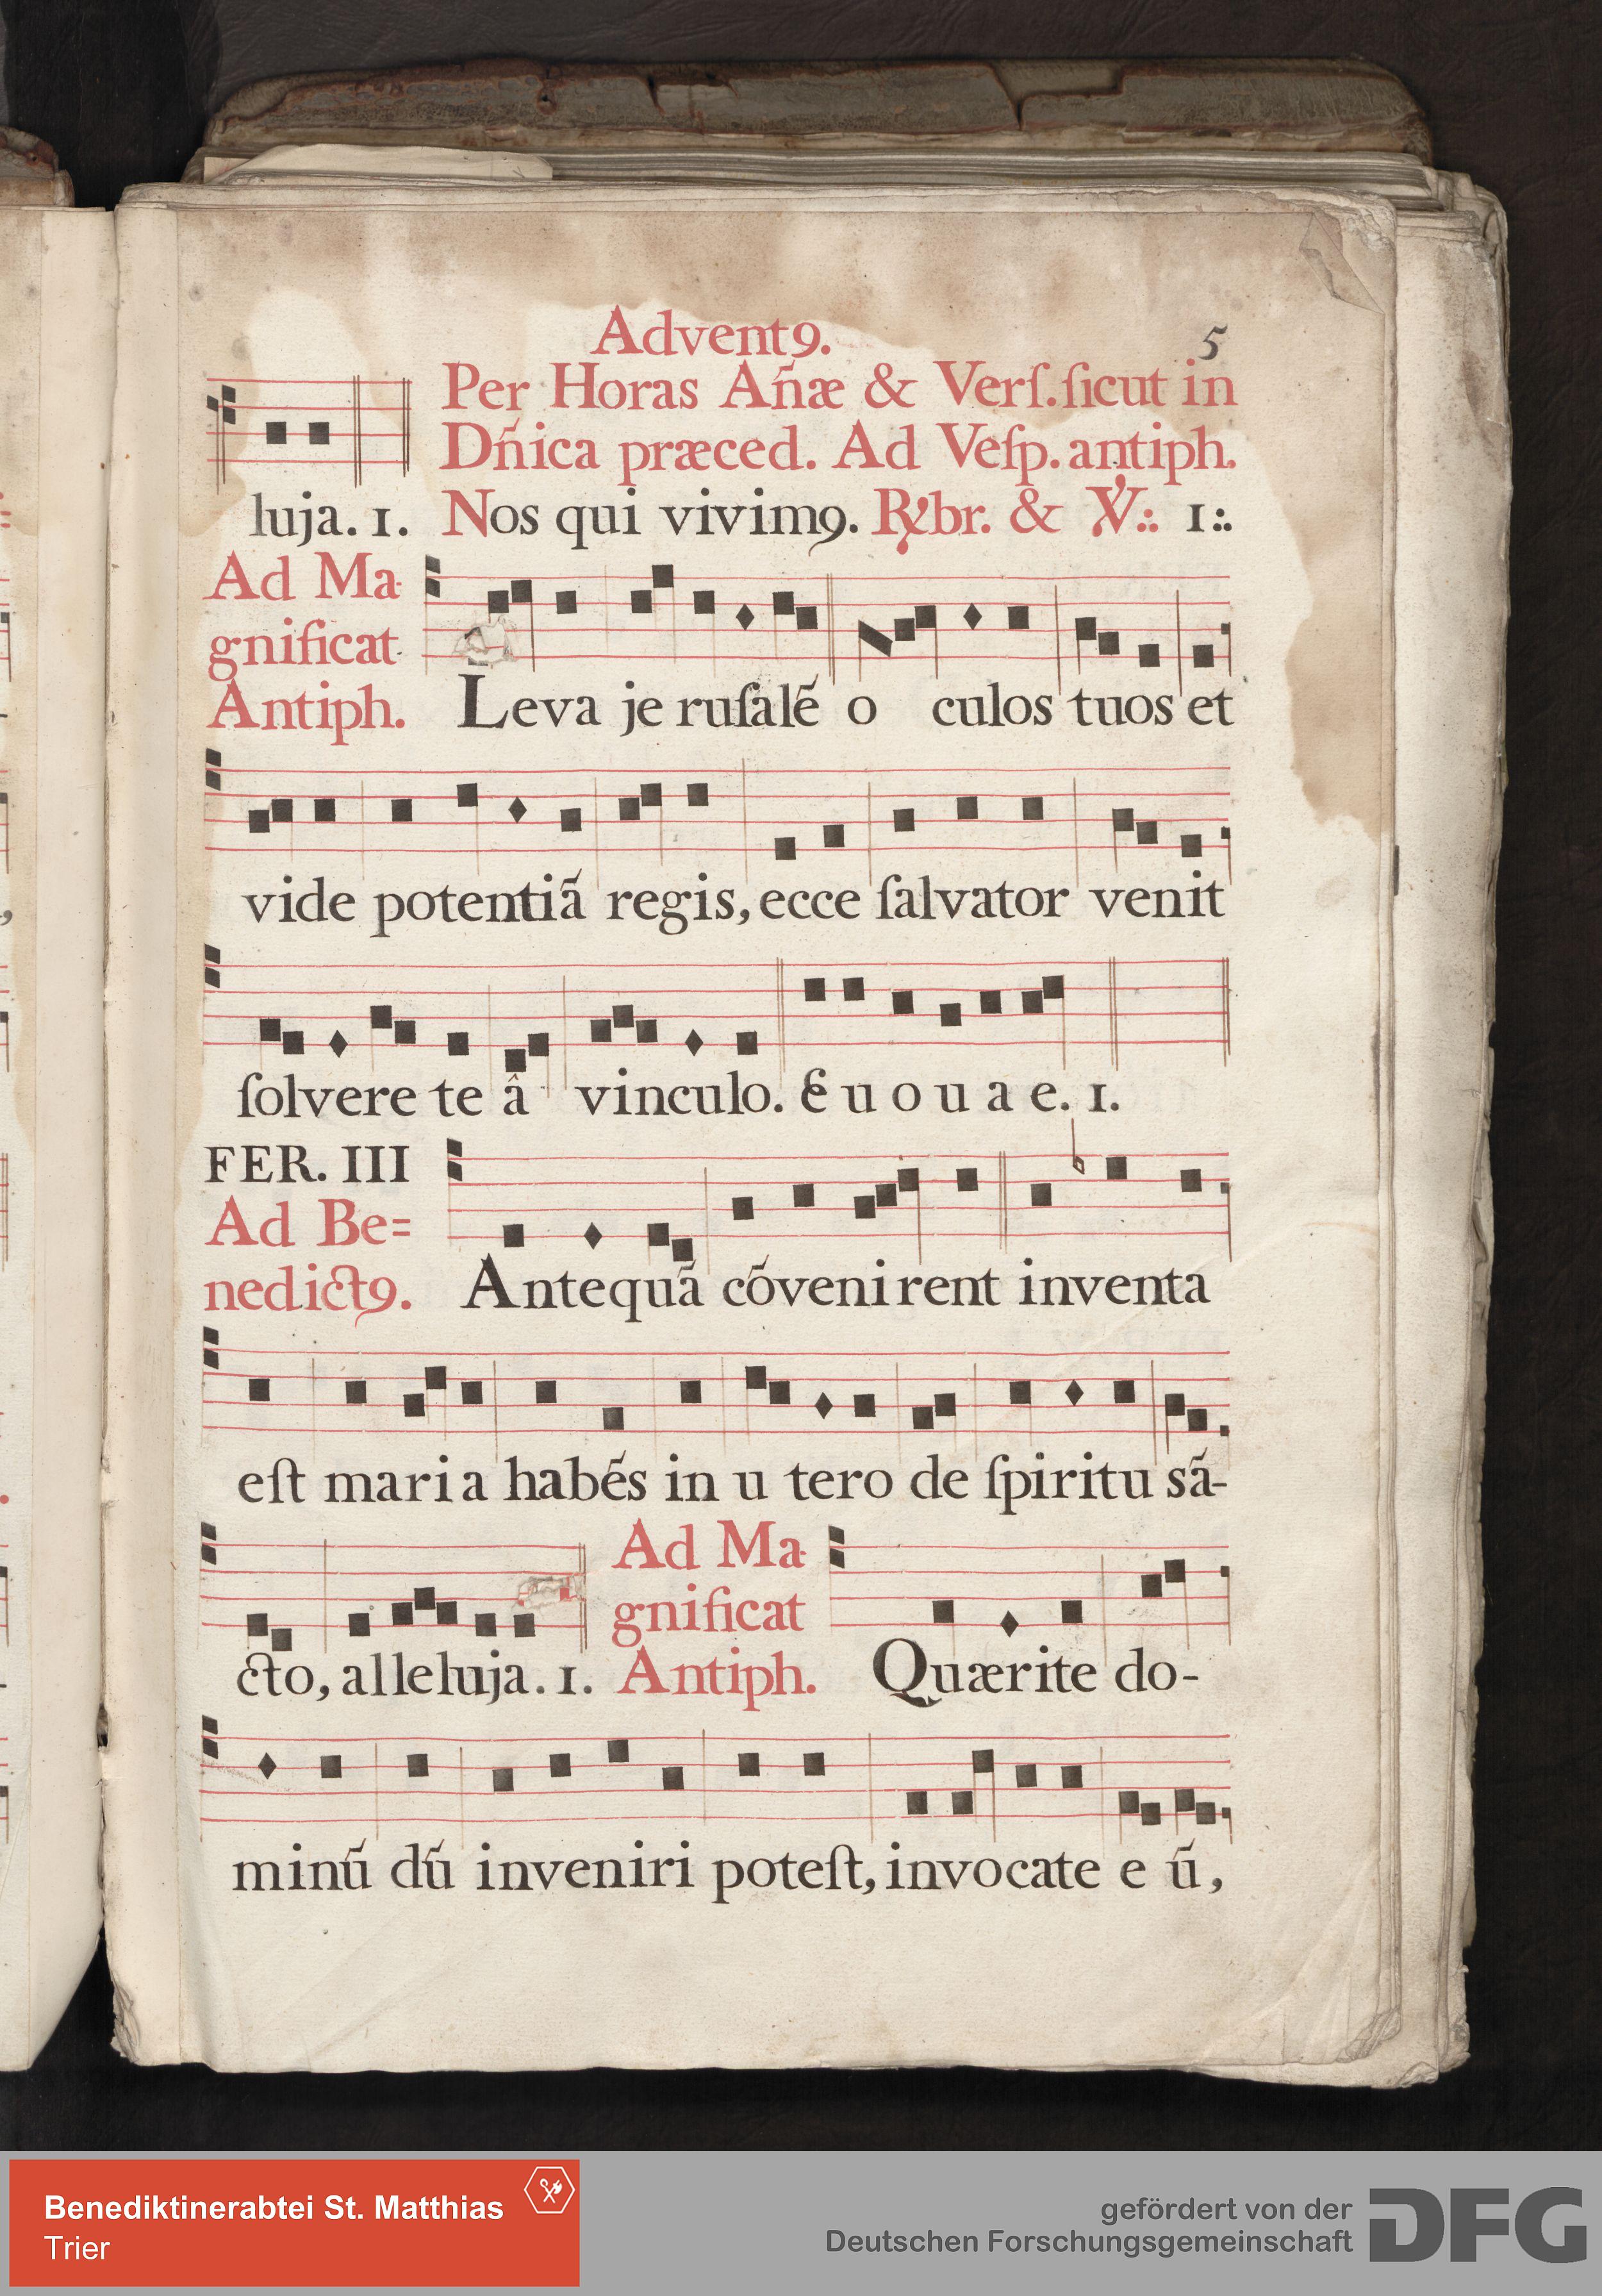 Advent9.
5
Per Horas Añæ & Verſ. ſicut in
Dñica præced. Ad Veſp. antiph.
luja. 1. Nos qui vivim9. ℟br. & ℣:. 1:.
Ad Ma-
gnificat
Antiph. Leva je ruſalẽ o culos tuos et
vide potentiã regis, ecce ſalvator venit
ſolvere te â vinculo. E u o u a e. 1.
FER. III
Ad Be=
nedict9. Antequã cõvenirent inventa
eſt maria habẽs in u tero de ſpiritu sã-
cto, alleluja. 1.
Ad Ma-
gnificat
Antiph. Quærite do-
minũ dũ inveniri poteſt, invocate e ũ,
Benediktinerabtei St. Matthias
Trier
gefördert von der
Deutschen Forschungsgemeinschaft
DFG